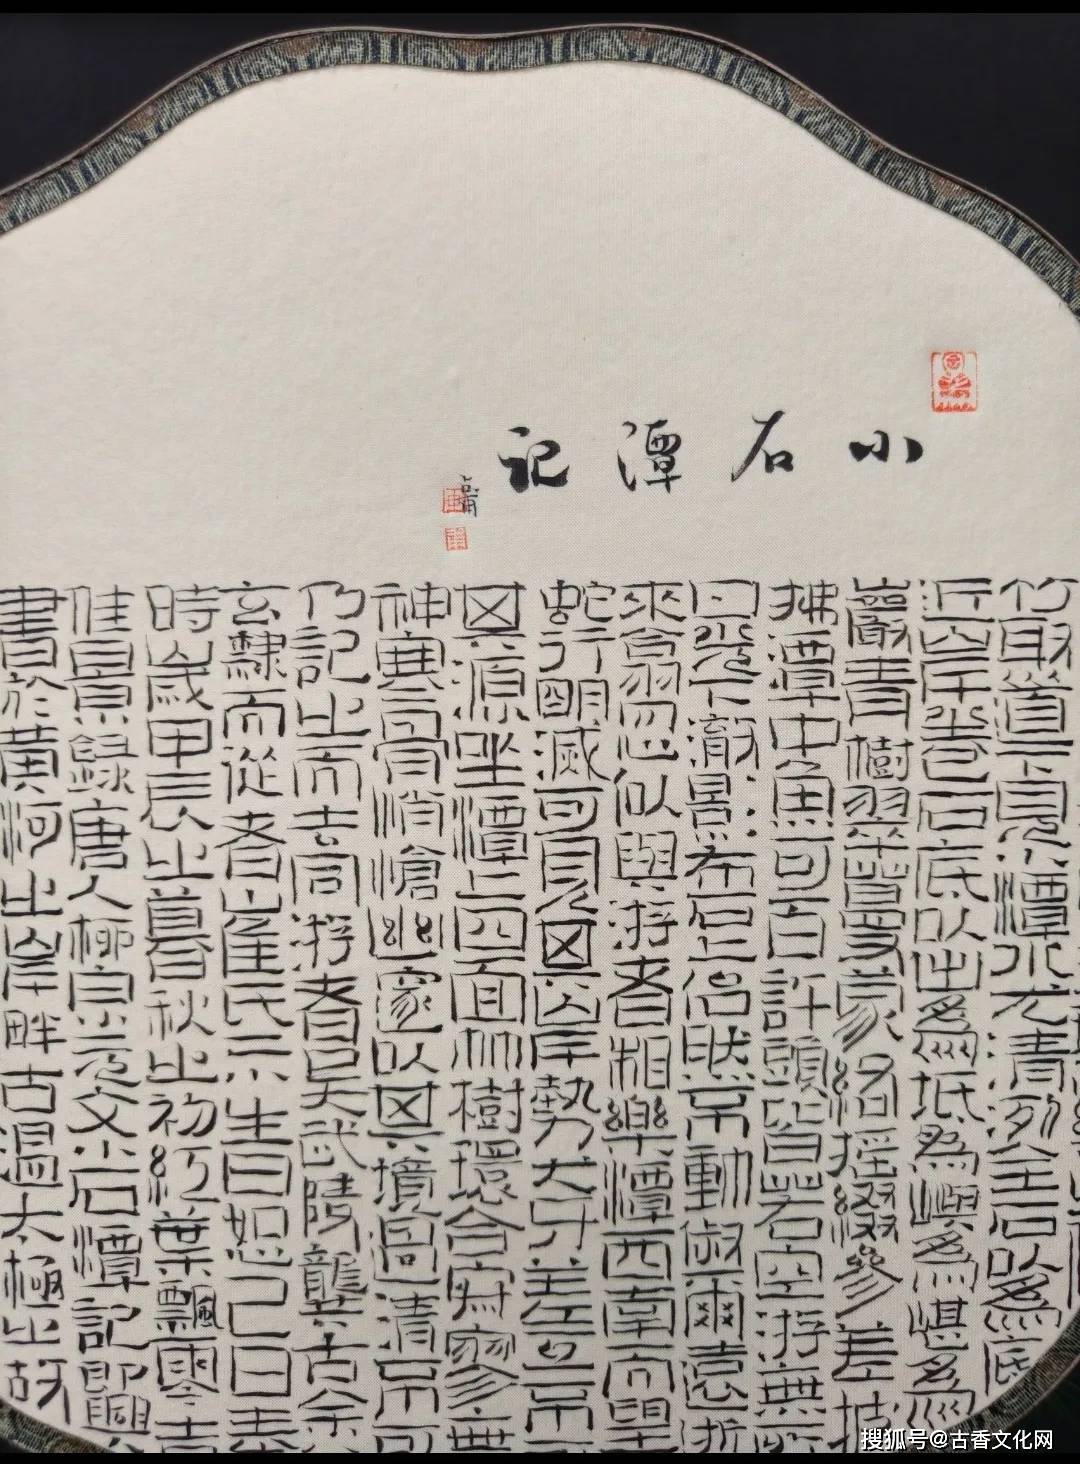 小石潭記
竹取道下見小潭水尤清洌全石以為底
近岸卷石底以出為坻為嶼為嵁為
巖青樹翠蔓蒙絡搖綴參差披
拂潭中魚可百許頭皆若空游無所
日光下澈影布石上佁然不動俶爾遠逝
來翕忽似與游者相樂潭西南而望
蛇行明滅可見其岸勢犬牙差互不
其源坐潭上四面竹樹環合寂寥無
神寒骨悄愴幽邃以其境過清不可
乃記之而去同游者吳武陵龔古余
玄隸而從者崔氏二小生曰恕己曰奉
時歲甲辰之暮春秋之初紅葉飄零
佳景錄唐人柳宗元文小石潭記即興
書於黃河之岸畔古溫太極之故
搜狐号@古香文化网